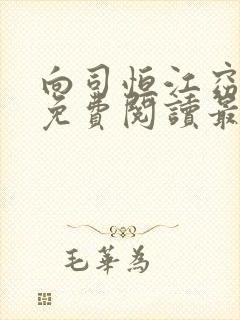 向司恒江窈
免費閱讀最
毛華為